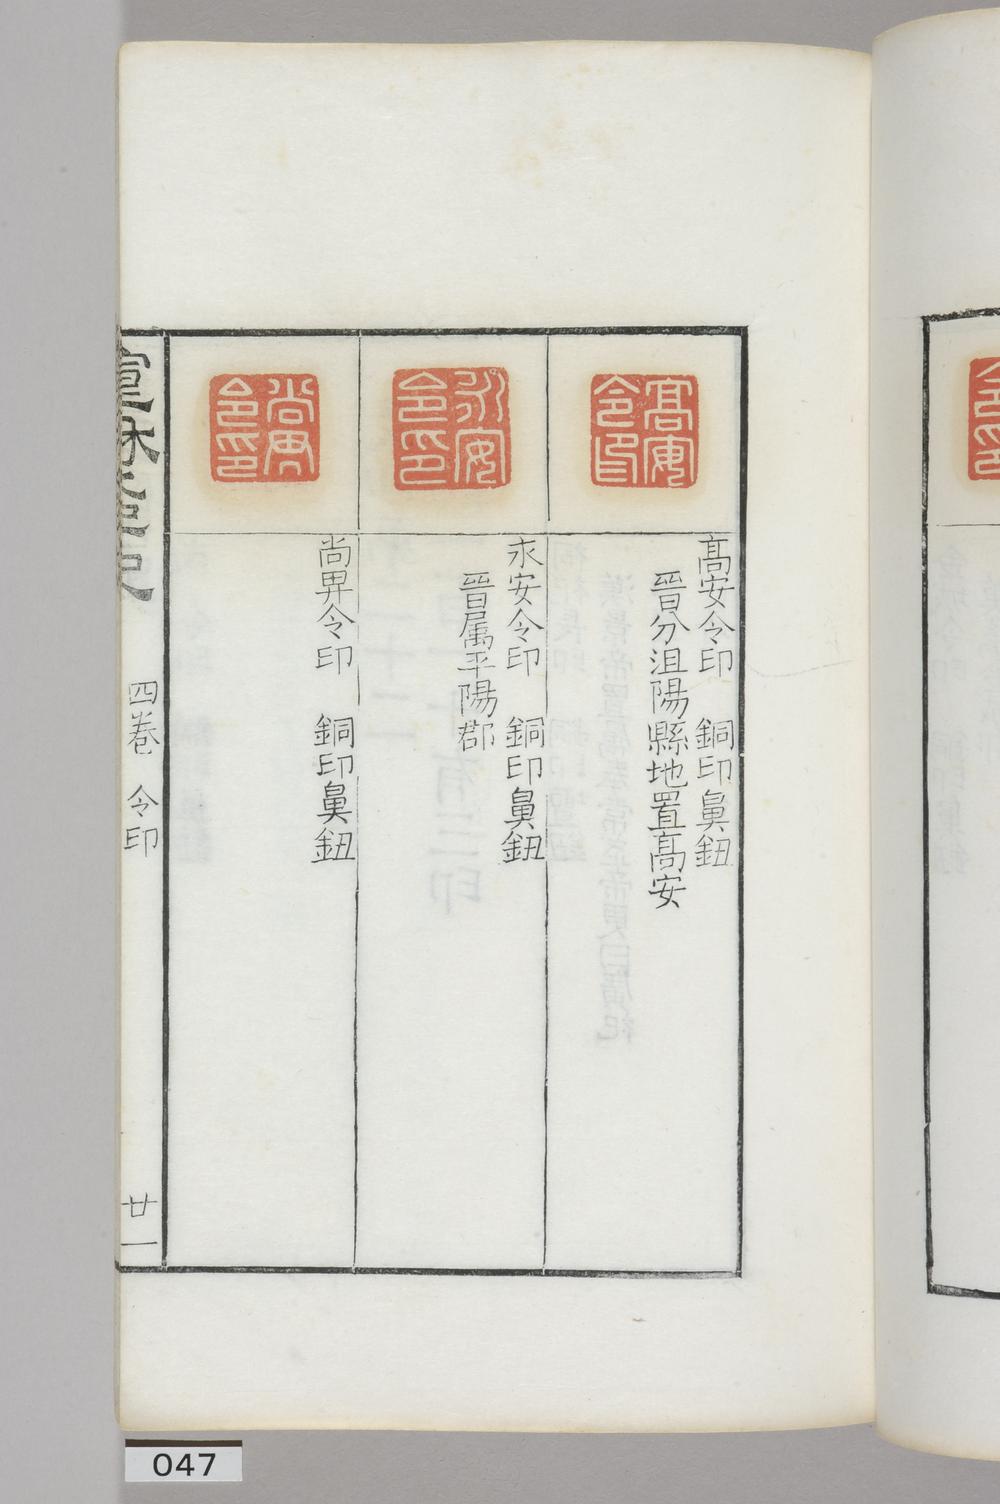 高安
令印
髙安令印　銅印鼻鈕
晉分沮陽縣地置髙安
永安
令印
永安令印　銅印鼻鈕
晉属平陽郡
尚畀
令印
尚畀令印　銅印鼻鈕
四卷　令印
廿一
047